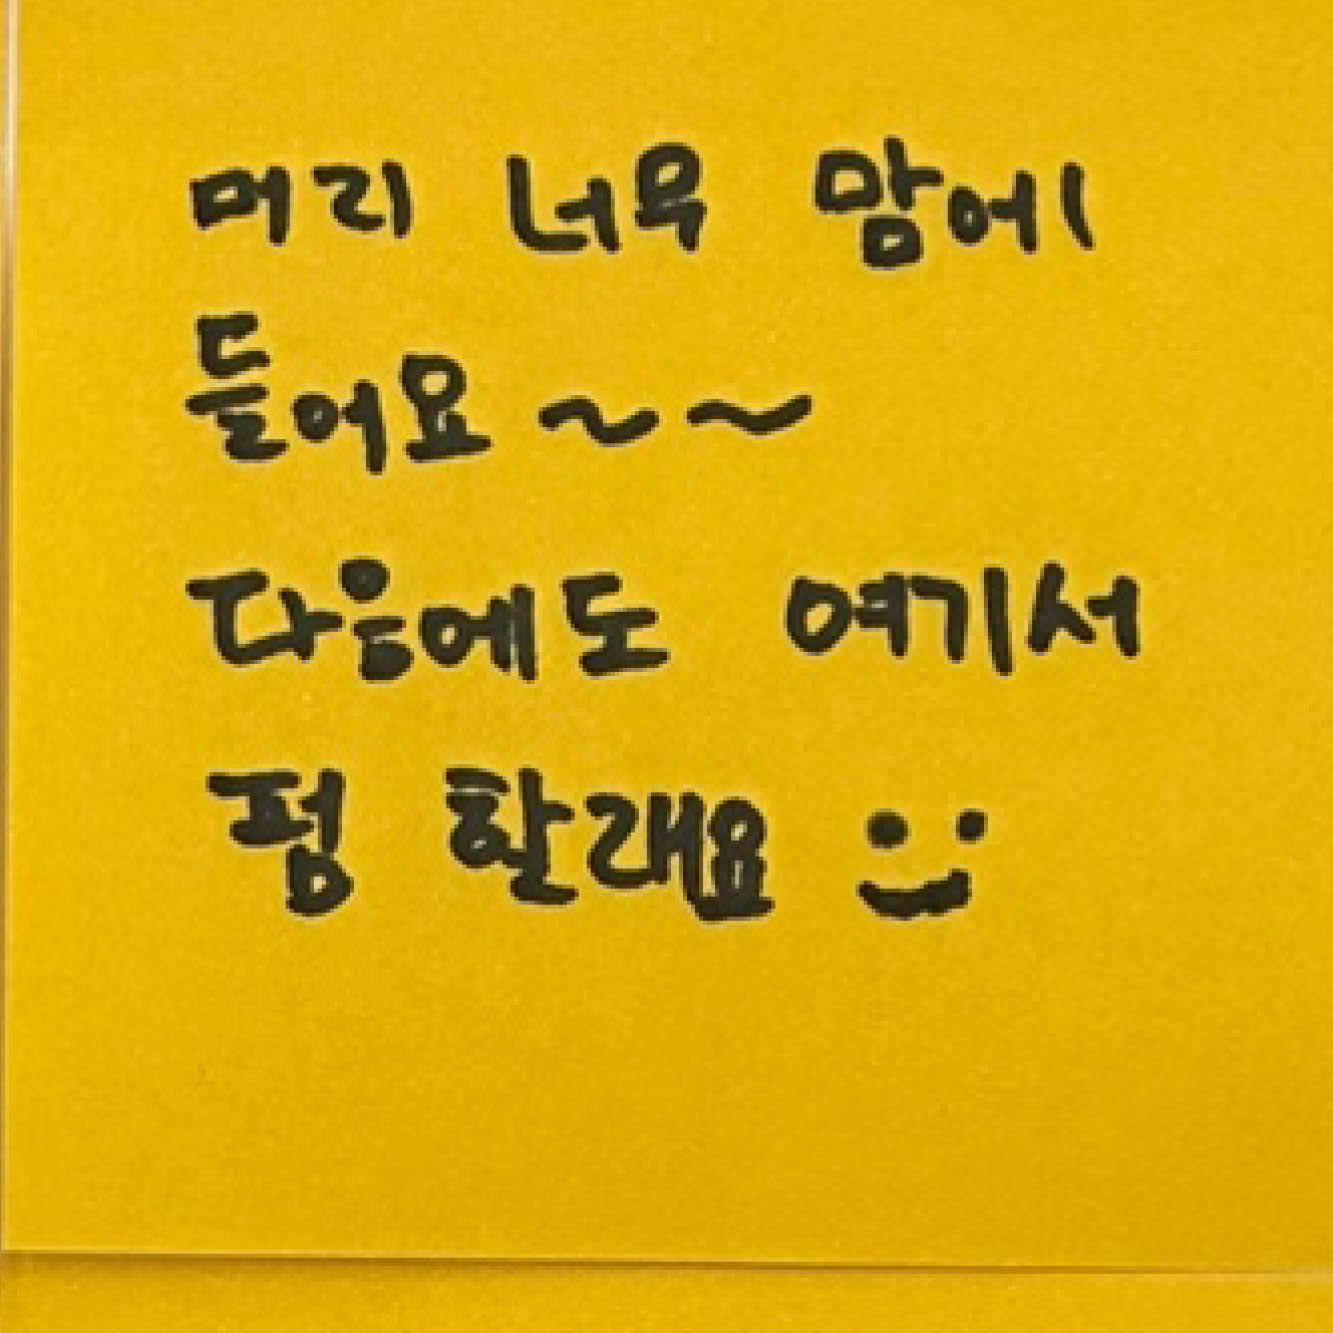 머리 너무 맘에
들어요~~
다음에도 여기서
펌 할래요